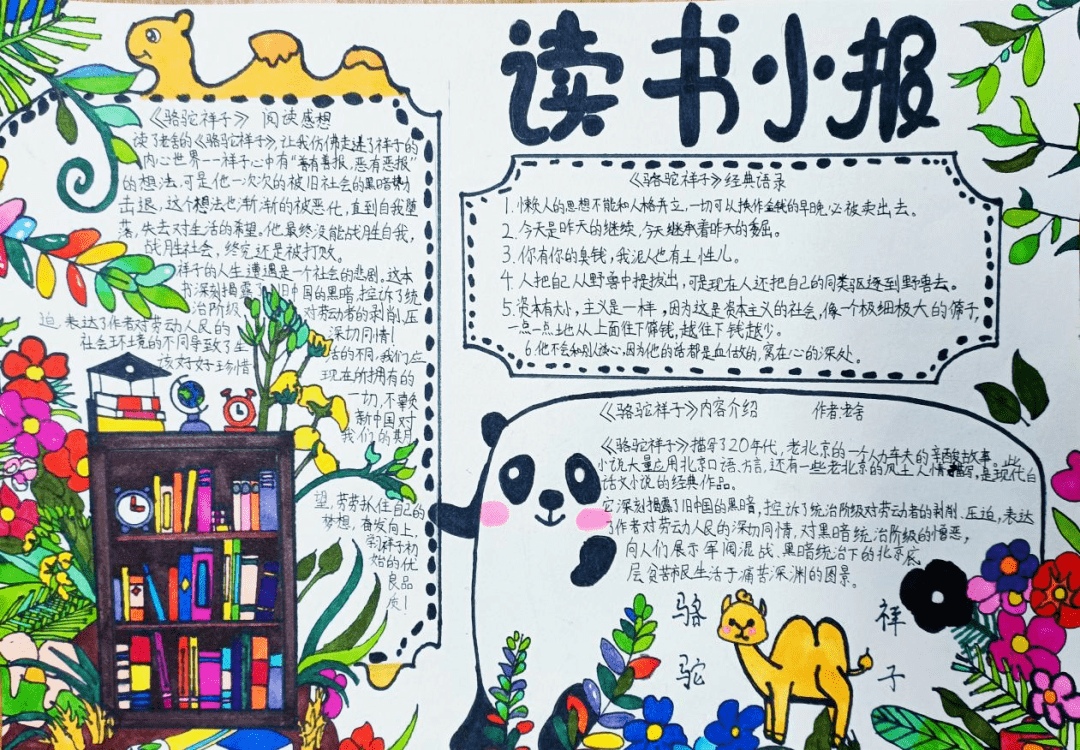 读书小报
《骆驼祥子》 阅读感想
读了老舍的《骆驼祥子》,让我仿佛走进了祥子的
内心世界——祥子心中有“善有善报,恶有恶报”
的想法,可是他一次次的被旧社会的黑暗势力
击退,这个想法也渐渐的被恶化,直到自我堕
落,失去对生活的希望。他最终没能战胜自我,
战胜社会,终究还是被打败。
祥子的人生遭遇是一个社会的悲剧。这本
书深刻揭露了旧中国的黑暗,控诉了统
治阶级 对劳动者的剥削、压
迫,表达了作者对劳动人民的 深切同情!
社会环境的不同导致了生 活的不同,我们应
该好好珍惜 现在所拥有的
一切,不辜负
新中国对
我们的期
望,努力抓住自己的
梦想,奋发向上,
学习祥子初
始的优
良品
质!
《骆驼祥子》经典语录
1.懒人的思想不能和人格并立,一切可以换作金钱的早晚必被卖出去。
2.今天是昨天的继续,今天继承着昨天的委屈。
3.你有你的臭钱,我泥人也有土性儿。
4.人把自己从野兽中提拔出,可是现在人还把自己的同类驱逐到野兽去。
5.资本有大小,主义是一样,因为这是资本主义的社会,像一个极细极大的筛子,
一点一点地从上面往下筛钱,越往下钱越少。
6.他不会和别人谈心,因为他的话都是血做的,窝在心的深处。
《骆驼祥子》内容介绍 作者:老舍
《骆驼祥子》描写了20年代,老北京的一个人力车夫的辛酸故事
小说大量应用北京口语、方言,还有一些老北京的风土人情描写,是现代白
话文小说的经典作品。
它深刻揭露了旧中国的黑暗,控诉了统治阶级对劳动者的剥削、压迫,表达
了作者对劳动人民的深切同情,对黑暗统治阶级的憎恶,
向人们展示军阀混战、黑暗统治下的北京底
层贫苦市民生活于痛苦深渊的图景。
骆 祥
驼 子